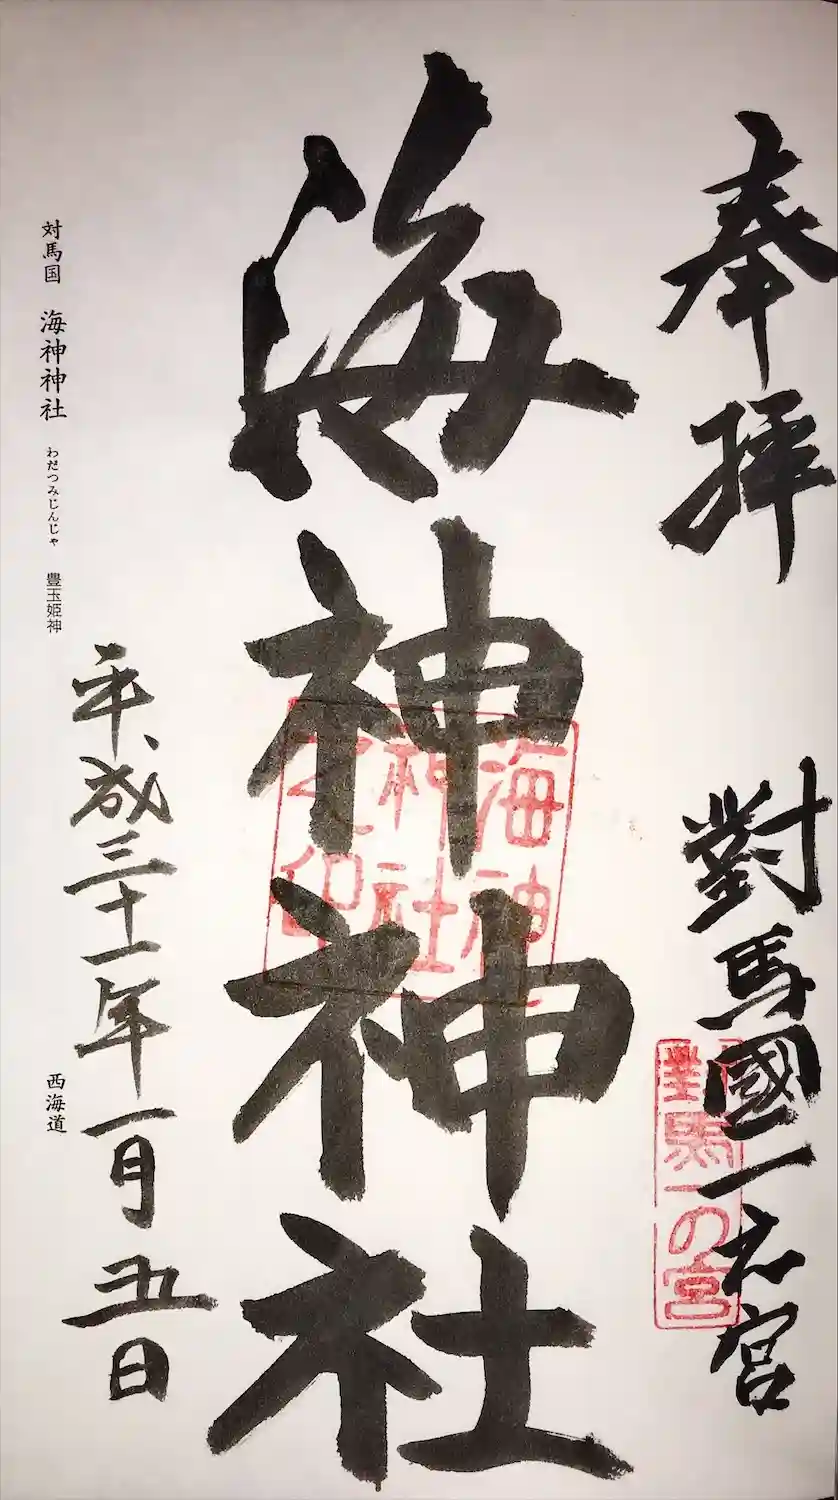 奉拝
對馬國一之宮
對馬一の宮
海神神社
海神
神社
之印
平成三十一年一月五日
対馬国 海神神社 わだつみじんじゃ 豊玉姫神
西海道